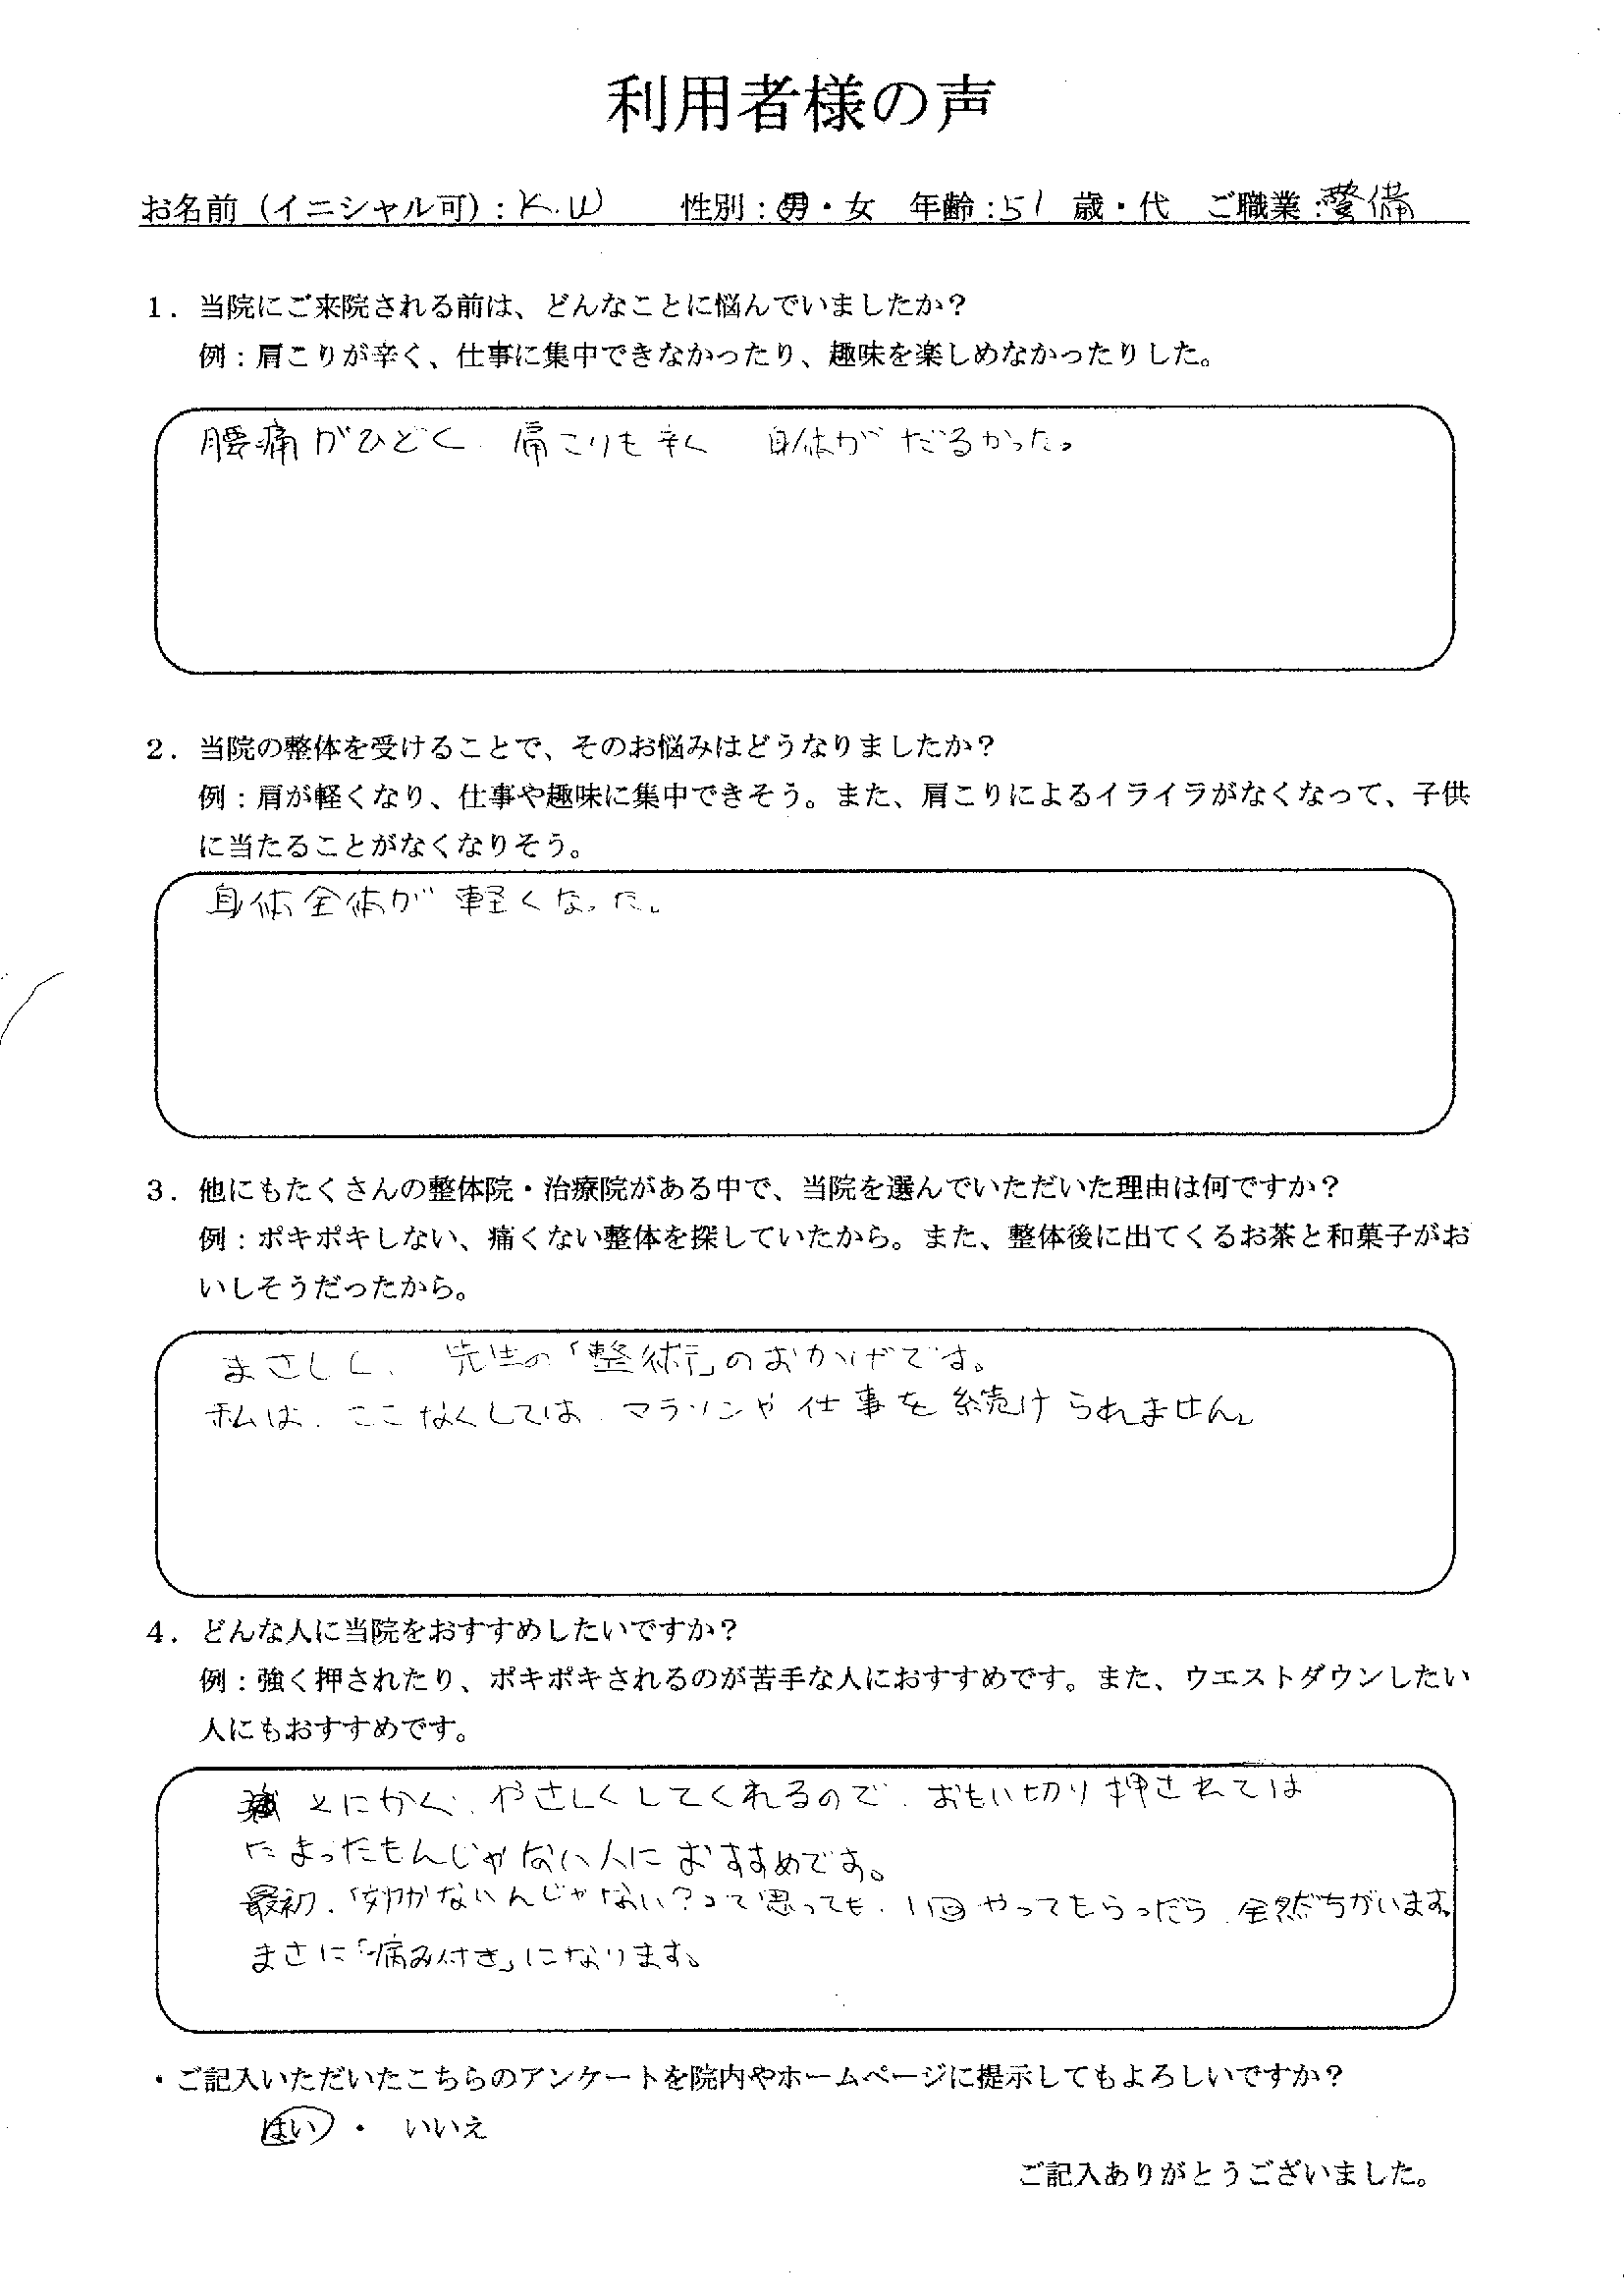 利用者様の声
お名前（イニシャル可）：K.W 性別：男・女 年齢：51 歳・代 ご職業：警備
1．当院にご来院される前は、どんなことに悩んでいましたか？
例：肩こりが辛く、仕事に集中できなかったり、趣味を楽しめなかったりした。
腰痛がひどく、肩こりも辛く 身体がだるかった。
2．当院の整体を受けることで、そのお悩みはどうなりましたか？
例：肩が軽くなり、仕事や趣味に集中できそう。また、肩こりによるイライラがなくなって、子供
に当たることがなくなりそう。
身体全体が軽くなった。
3．他にもたくさんの整体院・治療院がある中で、当院を選んでいただいた理由は何ですか？
例：ポキポキしない、痛くない整体を探していたから。また、整体後に出てくるお茶と和菓子がお
いしそうだったから。
まさしく、先生の「整術」のおかげです。
私は、ここなくしては、マラソンや仕事を続けられません。
4．どんな人に当院をおすすめしたいですか？
例：強く押されたり、ポキポキされるのが苦手な人におすすめです。また、ウエストダウンしたい
人にもおすすめです。
とにかく、やさしくしてくれるので、おもい切り押されては
たまったもんじゃない人におすすめです。
最初、「効かないんじゃない？って思っても、1回やってもらったら、全然ちがいます。
まさに「病み付き」になります。
・ご記入いただいたこちらのアンケートを院内やホームページに提示してもよろしいですか？
はい ・ いいえ
ご記入ありがとうございました。